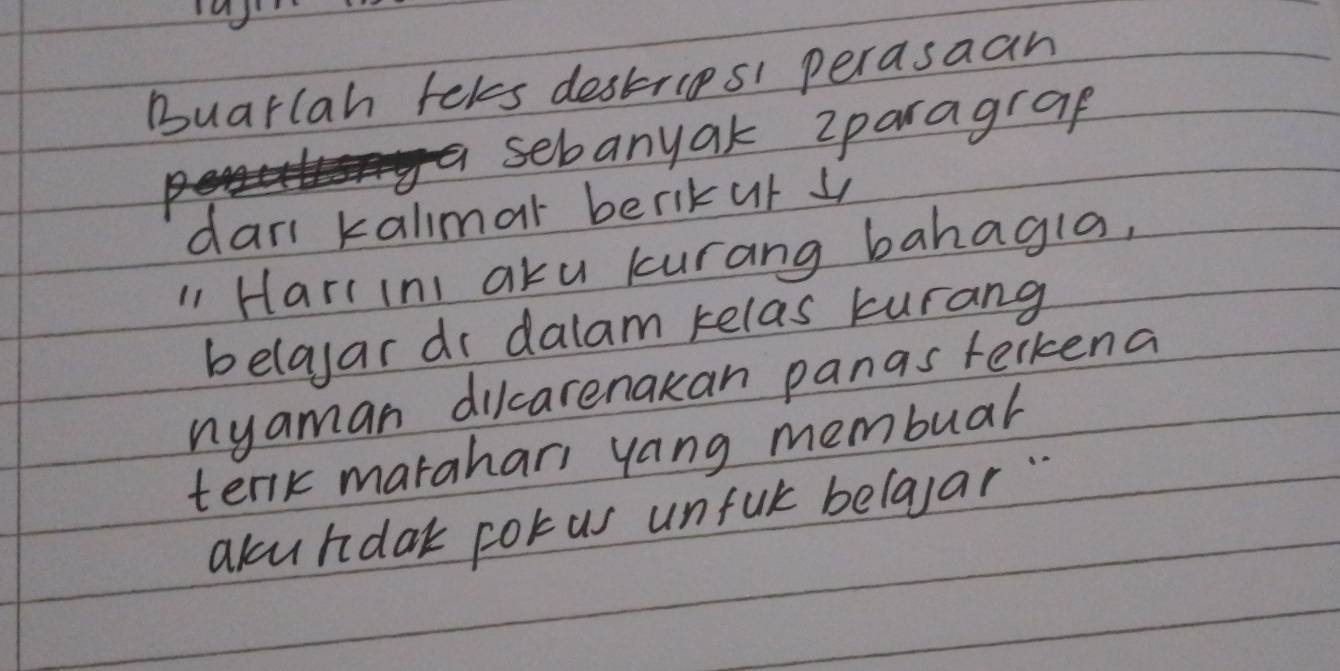 Buatlah teks deskripsi perasaan
sebanyak 2 paragraf
dari kalimat berikut ↓
"Hari ini aku kurang bahagia,
belajar di dalam kelas kurang
nyaman dikarenakan panas terkena
terik matahari yang membuat
aku tidak fokus untuk belajar"